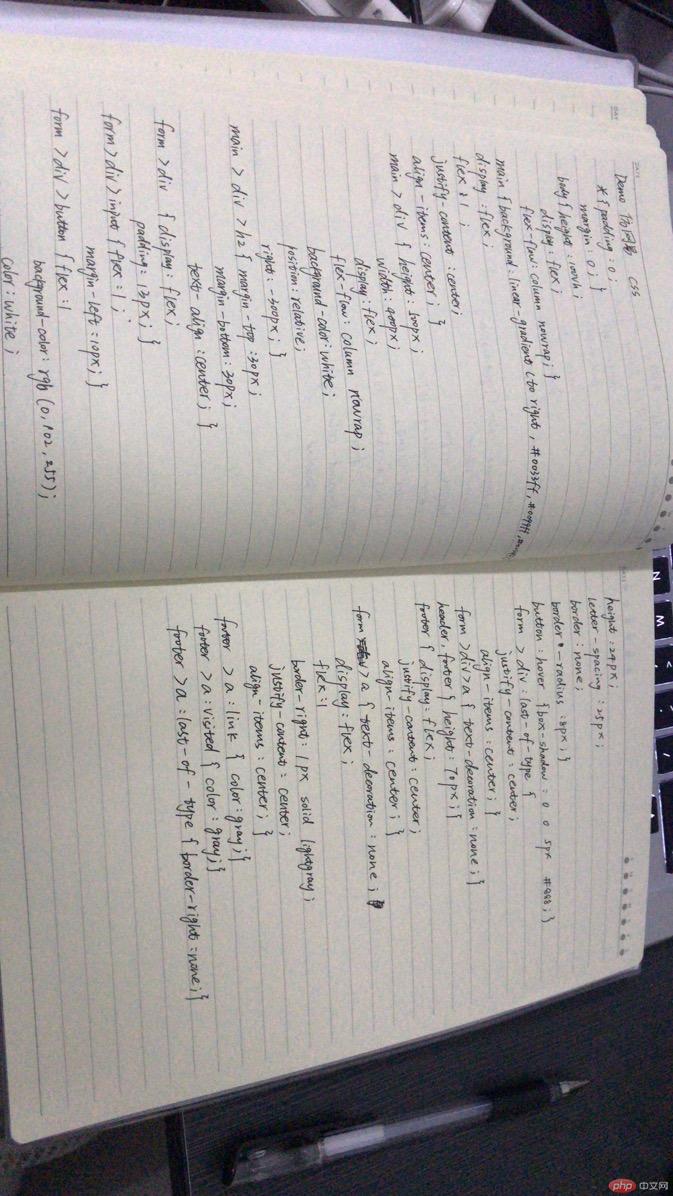 Demo CSS
*{padding:0;
margin:0;}
body{height:100vh;
display:flex;
flex-flow:column nowrap;}
main{background:linear-gradient(to right,#0033ff,#0099ff,
display:flex;
flex:1;
justify-content:center;
align-items:center;}
main>div{height:500px;
width:400px;
display:flex;
flex-flow:column nowrap;
background-color:white;
position:relative;
right:-300px;}
main>div>h2{margin-top:30px;
margin-bottom:30px;
text-align:center;}
form>div{display:flex;
padding:13px;}
form>div>input{flex=1;
margin-left:10px;}
form>div>button{flex:1
background-color:rgb(0,102,255);
color:white;
height:24px;
letter-spacing:15px;
border:none;
border-radius:8px;}
button:hover{box-shadow=0 0 5px #888;}
form>div:last-of-type{
justify-content:center;
align-items:center;}
form>div>a{text-decoration:none;}
header,footer{height:70px;}
footer{display:flex;
justify-content:center;
align-items:center;}
form >a{text-decoration:none;
display:flex;
flex:1
border-right:1px solid lightgray;
justify-content:center;
align-items:center;}
footer>a:link{color:gray;}
footer>a:visited{color:gray;}
footer>a:last-of-type{border-right:none;}
php 中文网